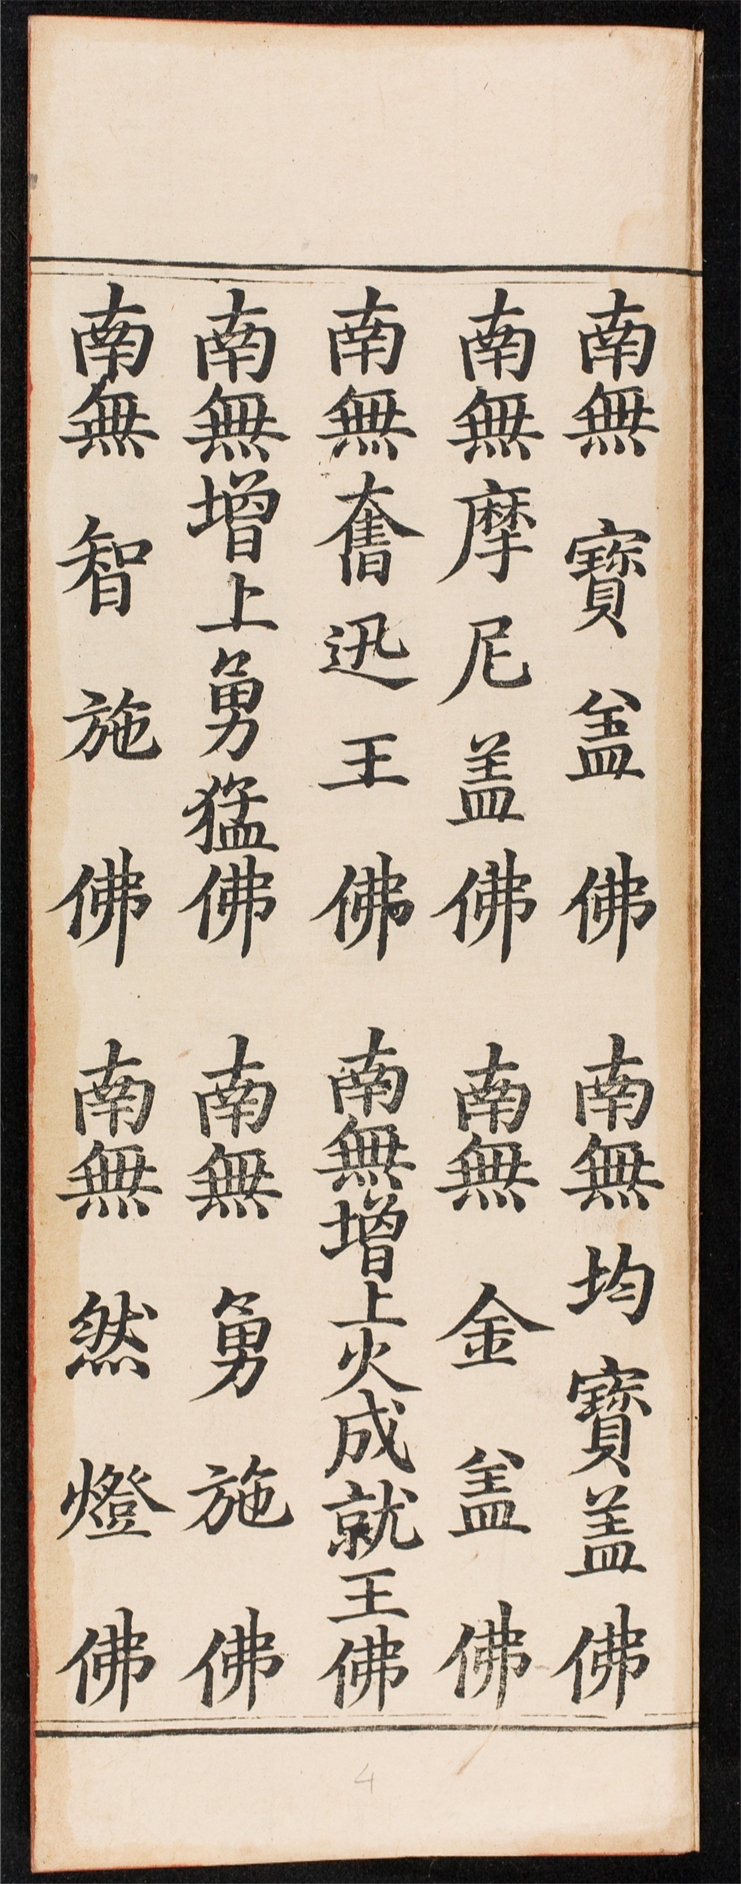 南無寶盖佛 南無均寶盖佛
南無摩尼盖佛 南無金盖佛
南無奮迅王佛 南無增上火成就王佛
南無增上勇猛佛 南無勇施佛
南無智施佛 南無然燈佛
4